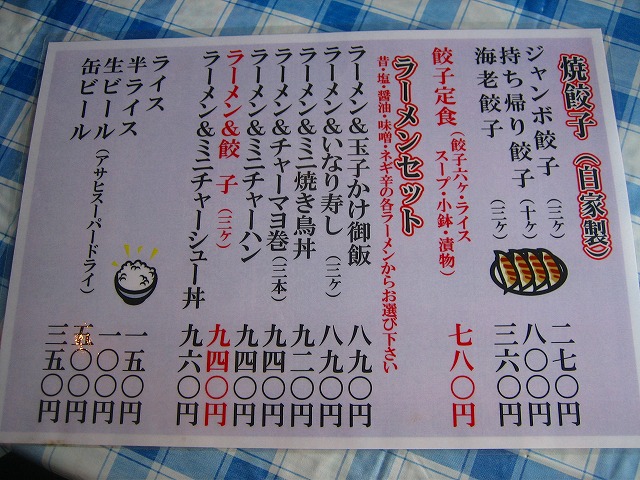 焼餃子（自家製）
ジャンボ餃子（三ヶ）二七〇円
持ち帰り餃子（十ヶ）八〇〇円
海老餃子（三ヶ）三六〇円
餃子定食（餃子六ヶ・ライス
スープ・小鉢・漬物）七八〇円
ラーメンセット
昔・塩・醤油・味噌・ネギ辛の各ラーメンからお選び下さい
ラーメン＆玉子かけ御飯 八九〇円
ラーメン＆いなり寿し（三ヶ）八九〇円
ラーメン＆ミニ焼き鳥丼 九二〇円
ラーメン＆チャーマヨ巻（三本）九四〇円
ラーメン＆ミニチャーハン 九四〇円
ラーメン＆餃子（三ヶ）九四〇円
ラーメン＆ミニチャーシュー丼 九六〇円
ライス 一五〇円
半ライス 一〇〇円
生ビール（アサヒスーパードライ）五〇〇円
缶ビール 三五〇円